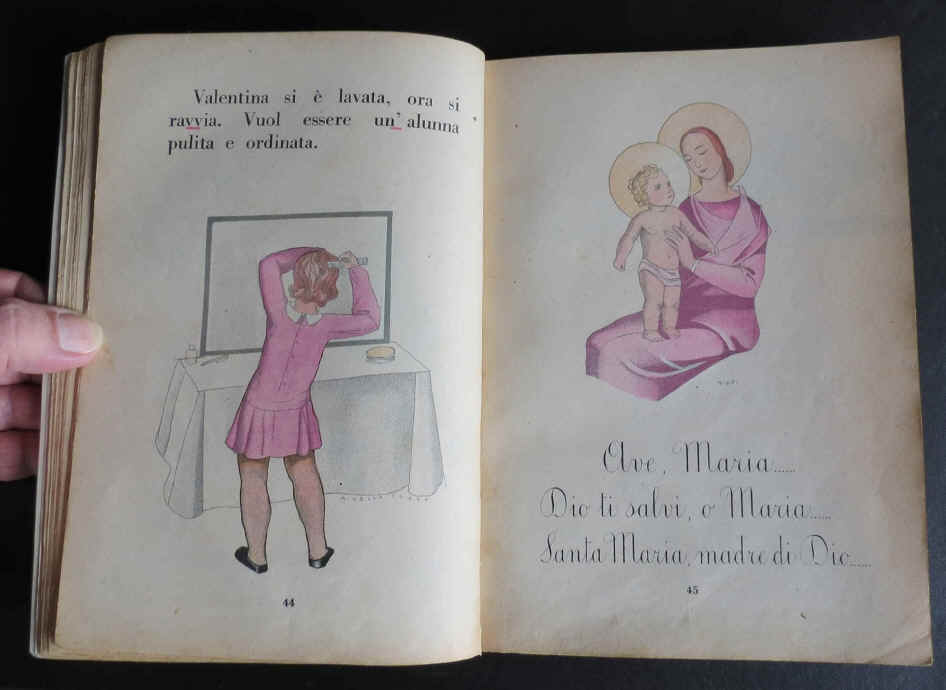 Valentina si è lavata, ora si
ravvia. Vuol essere un' alunna
pulita e ordinata.
44
Ave, Maria......
Dio ti salvi, o Maria......
Santa Maria, madre di Dio......
45